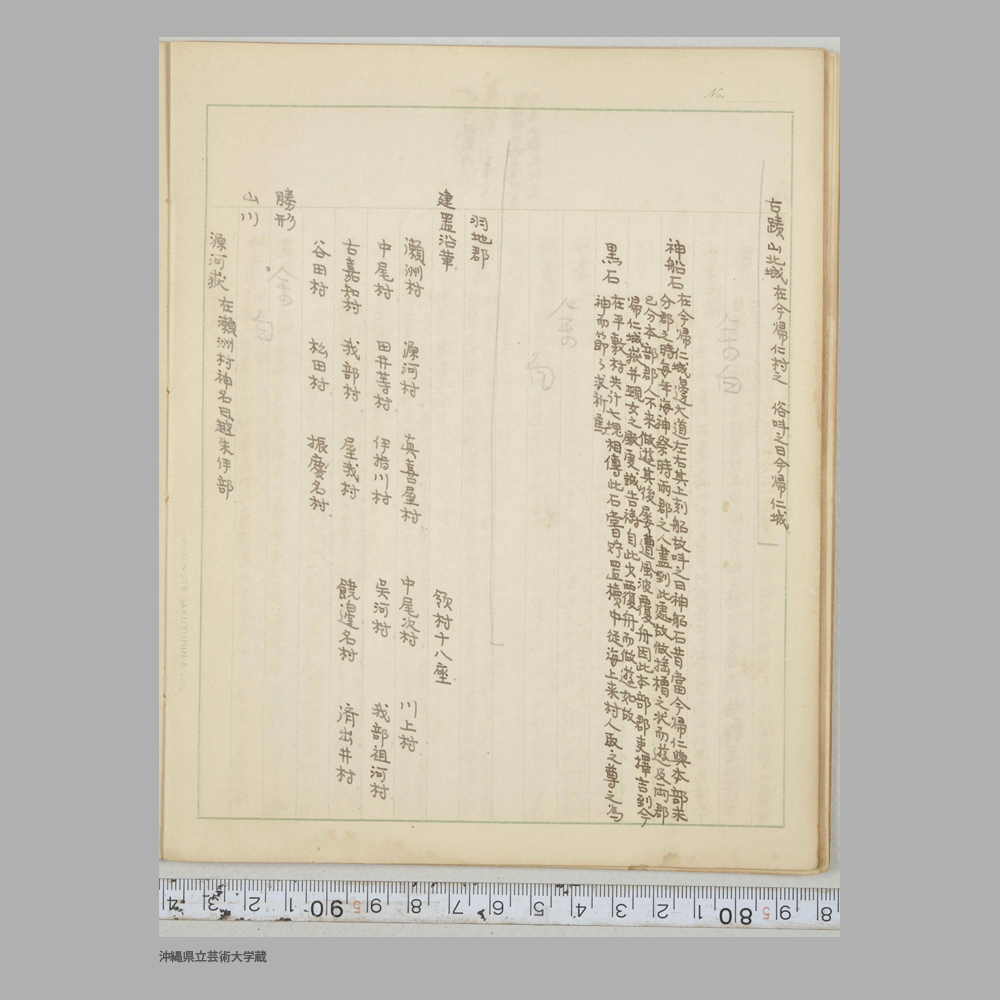 No.
古蹟 山北城 在今帰仁村之 俗呼之曰今帰仁城
神船石 在今帰仁城邊大道左右其上刻船故呼之曰神船石昔當今帰仁與本部未
分郡之時毎年海神祭時兩郡之人盡到此處故做揺櫓之状而遊及兩郡
已分本部郡人不来做遊其後屡遭風波覆舟因此本部郡吏擇吉到今
帰仁城嶽并覡女之殿虔誠告禱自此欠覆舟而做遊如故
黒石 在平敷村共計七塊相傳此石昔日貯置櫃中従海上来村人取之尊之為
神而節々求祈焉
羽地郡
建置沿革 領村十八座
瀬洲村 源河村 真喜屋村 中尾次村 川上村
中尾村 田井等村 伊指川村 呉河村 我部祖河村
古嘉知村 我部村 屋我村 饒邊名村 済出井村
谷田村 松田村 振慶名村
勝形
山川
源河嶽 在瀬洲村神名曰越朱伊部
沖縄県立芸術大学蔵